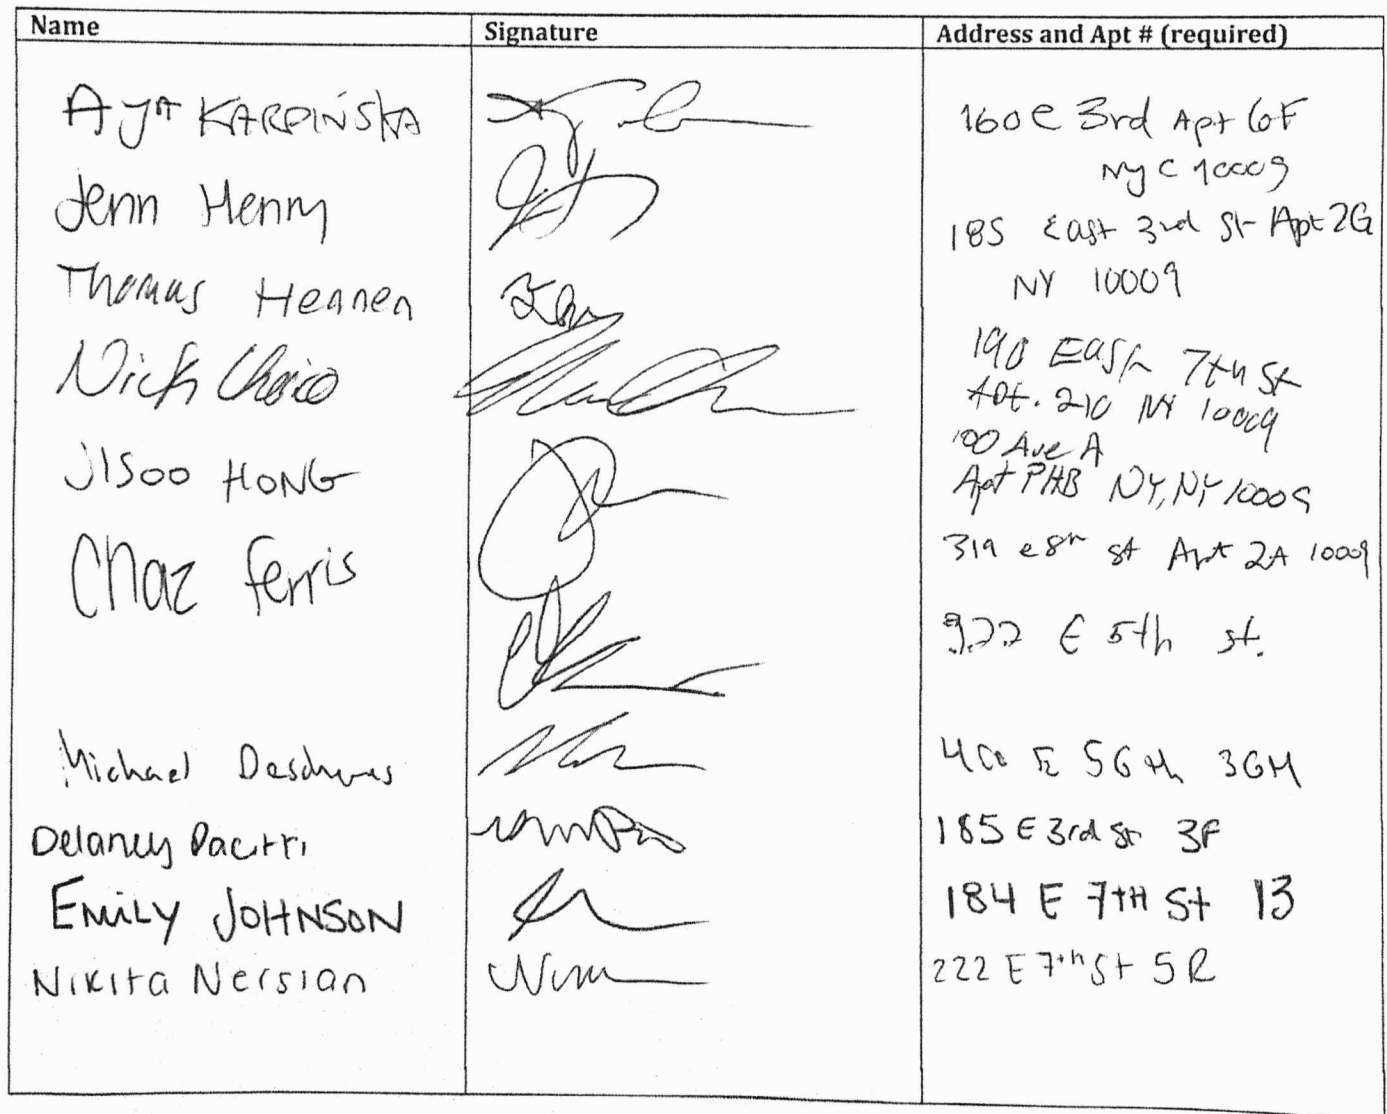 Name Signature Address and Apt # (required)
AYA KARPIŃSKA 160 e 3rd Apt 6F
NYC 10009
Jenn Henry 185 East 3rd St Apt 2G
NY 10009
Thomas Hennen
Nick 190 East 7th St
Apt. 210 NY 10009
JISOO HONG 100 Ave A
Apt PHB NY, NY 10009
Chaz Ferris 319 e 8th st Apt 2A 10009
922 E 5th st.
Michael 400 E 56th 36M
Delaney Pacitti 185 E 3rd St 3F
EMILY JOHNSON 184 E 7TH St 13
Nikita Nersian 222 E 7th St 5R